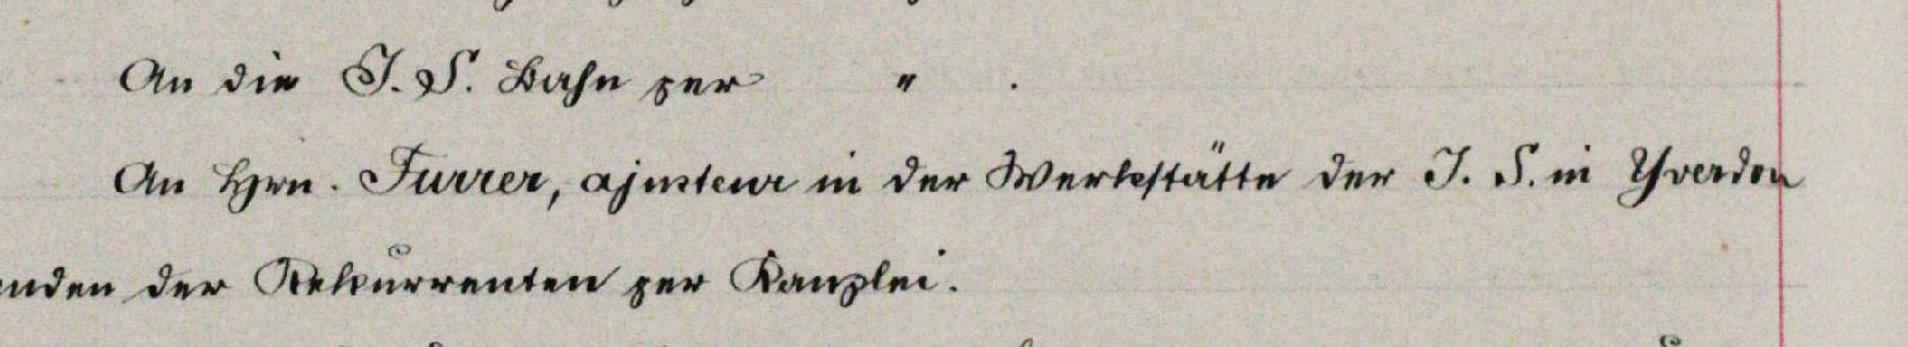 An die J. S. Bahn per " .
An Hrn. Furrer, ajusteur in der Werkstätte der J. S. in Yverdon
anden der Rekurrenten per Kanzlei.